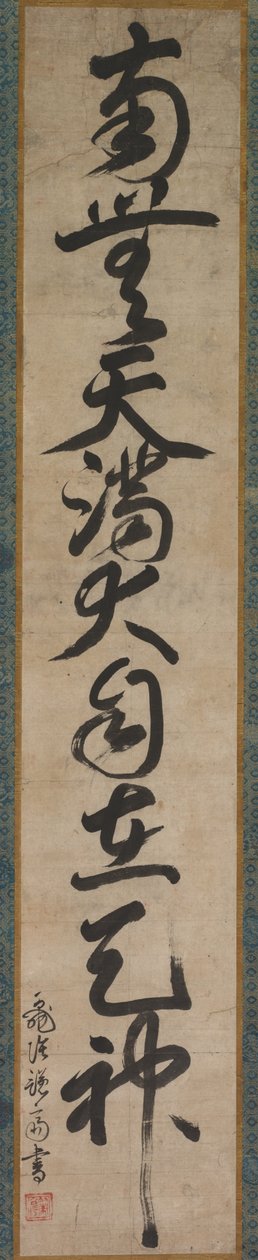 南無天満大自在天神
書